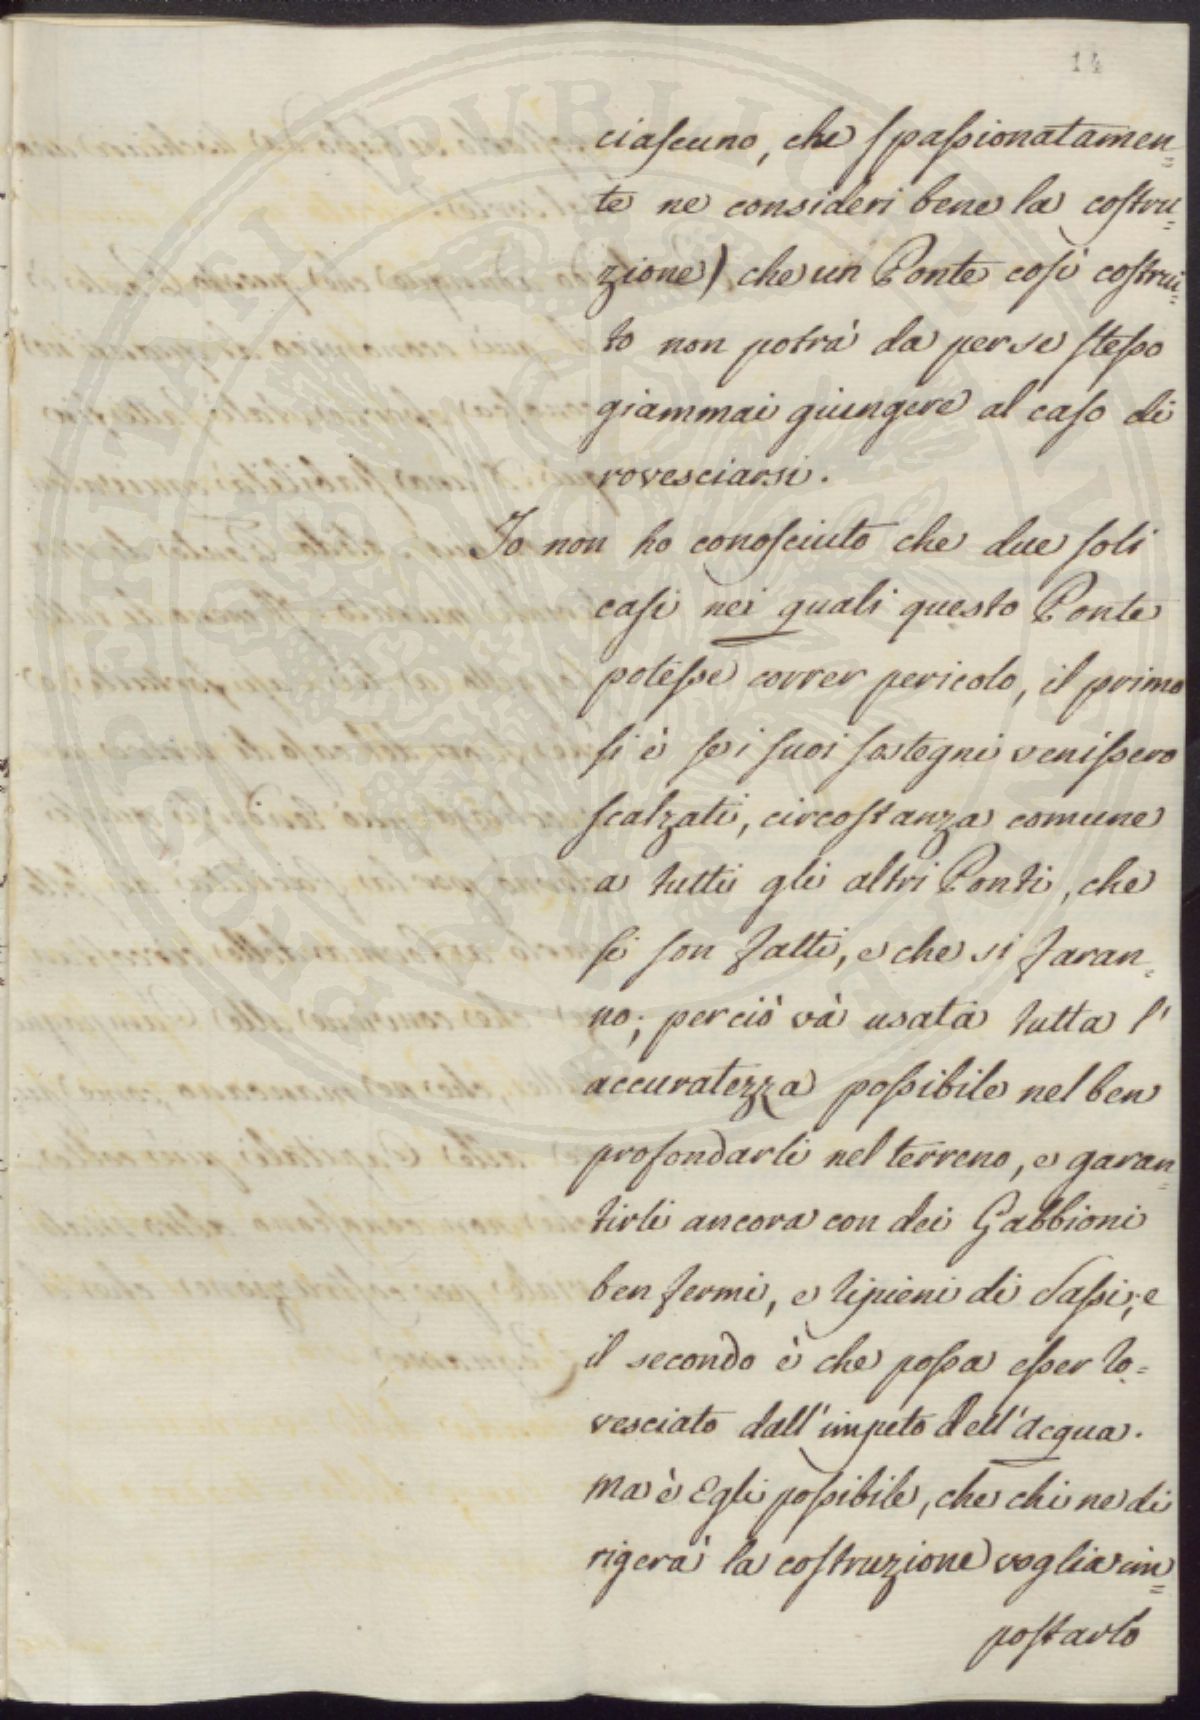 14
ciascuno, che spassionatamen=
te ne consideri bene la costru=
zione) che un Ponte così costrui=
to non potrà da per se stesso
giammai giungere al caso di
rovesciarsi.
Io non ho conosciuto che due soli
casi nei quali questo Ponte
potesse correr pericolo, il primo
si è se i suoi sostegni venissero
scalzati, circostanza comune
a tutti gli altri Ponti, che
si son fatti, e che si faran=
no; perciò và usata tutta l'
accuratezza possibile nel ben
profondarli nel terreno, e garan=
tirli ancora con dei Gabbioni
ben fermi, e ripieni di Sassi; e
il secondo è che possa esser ro=
vesciato dall'impeto dell'Acqua.
Ma è Egli possibile, che chi ne di
rigerà la costruzione voglia im=
postarlo